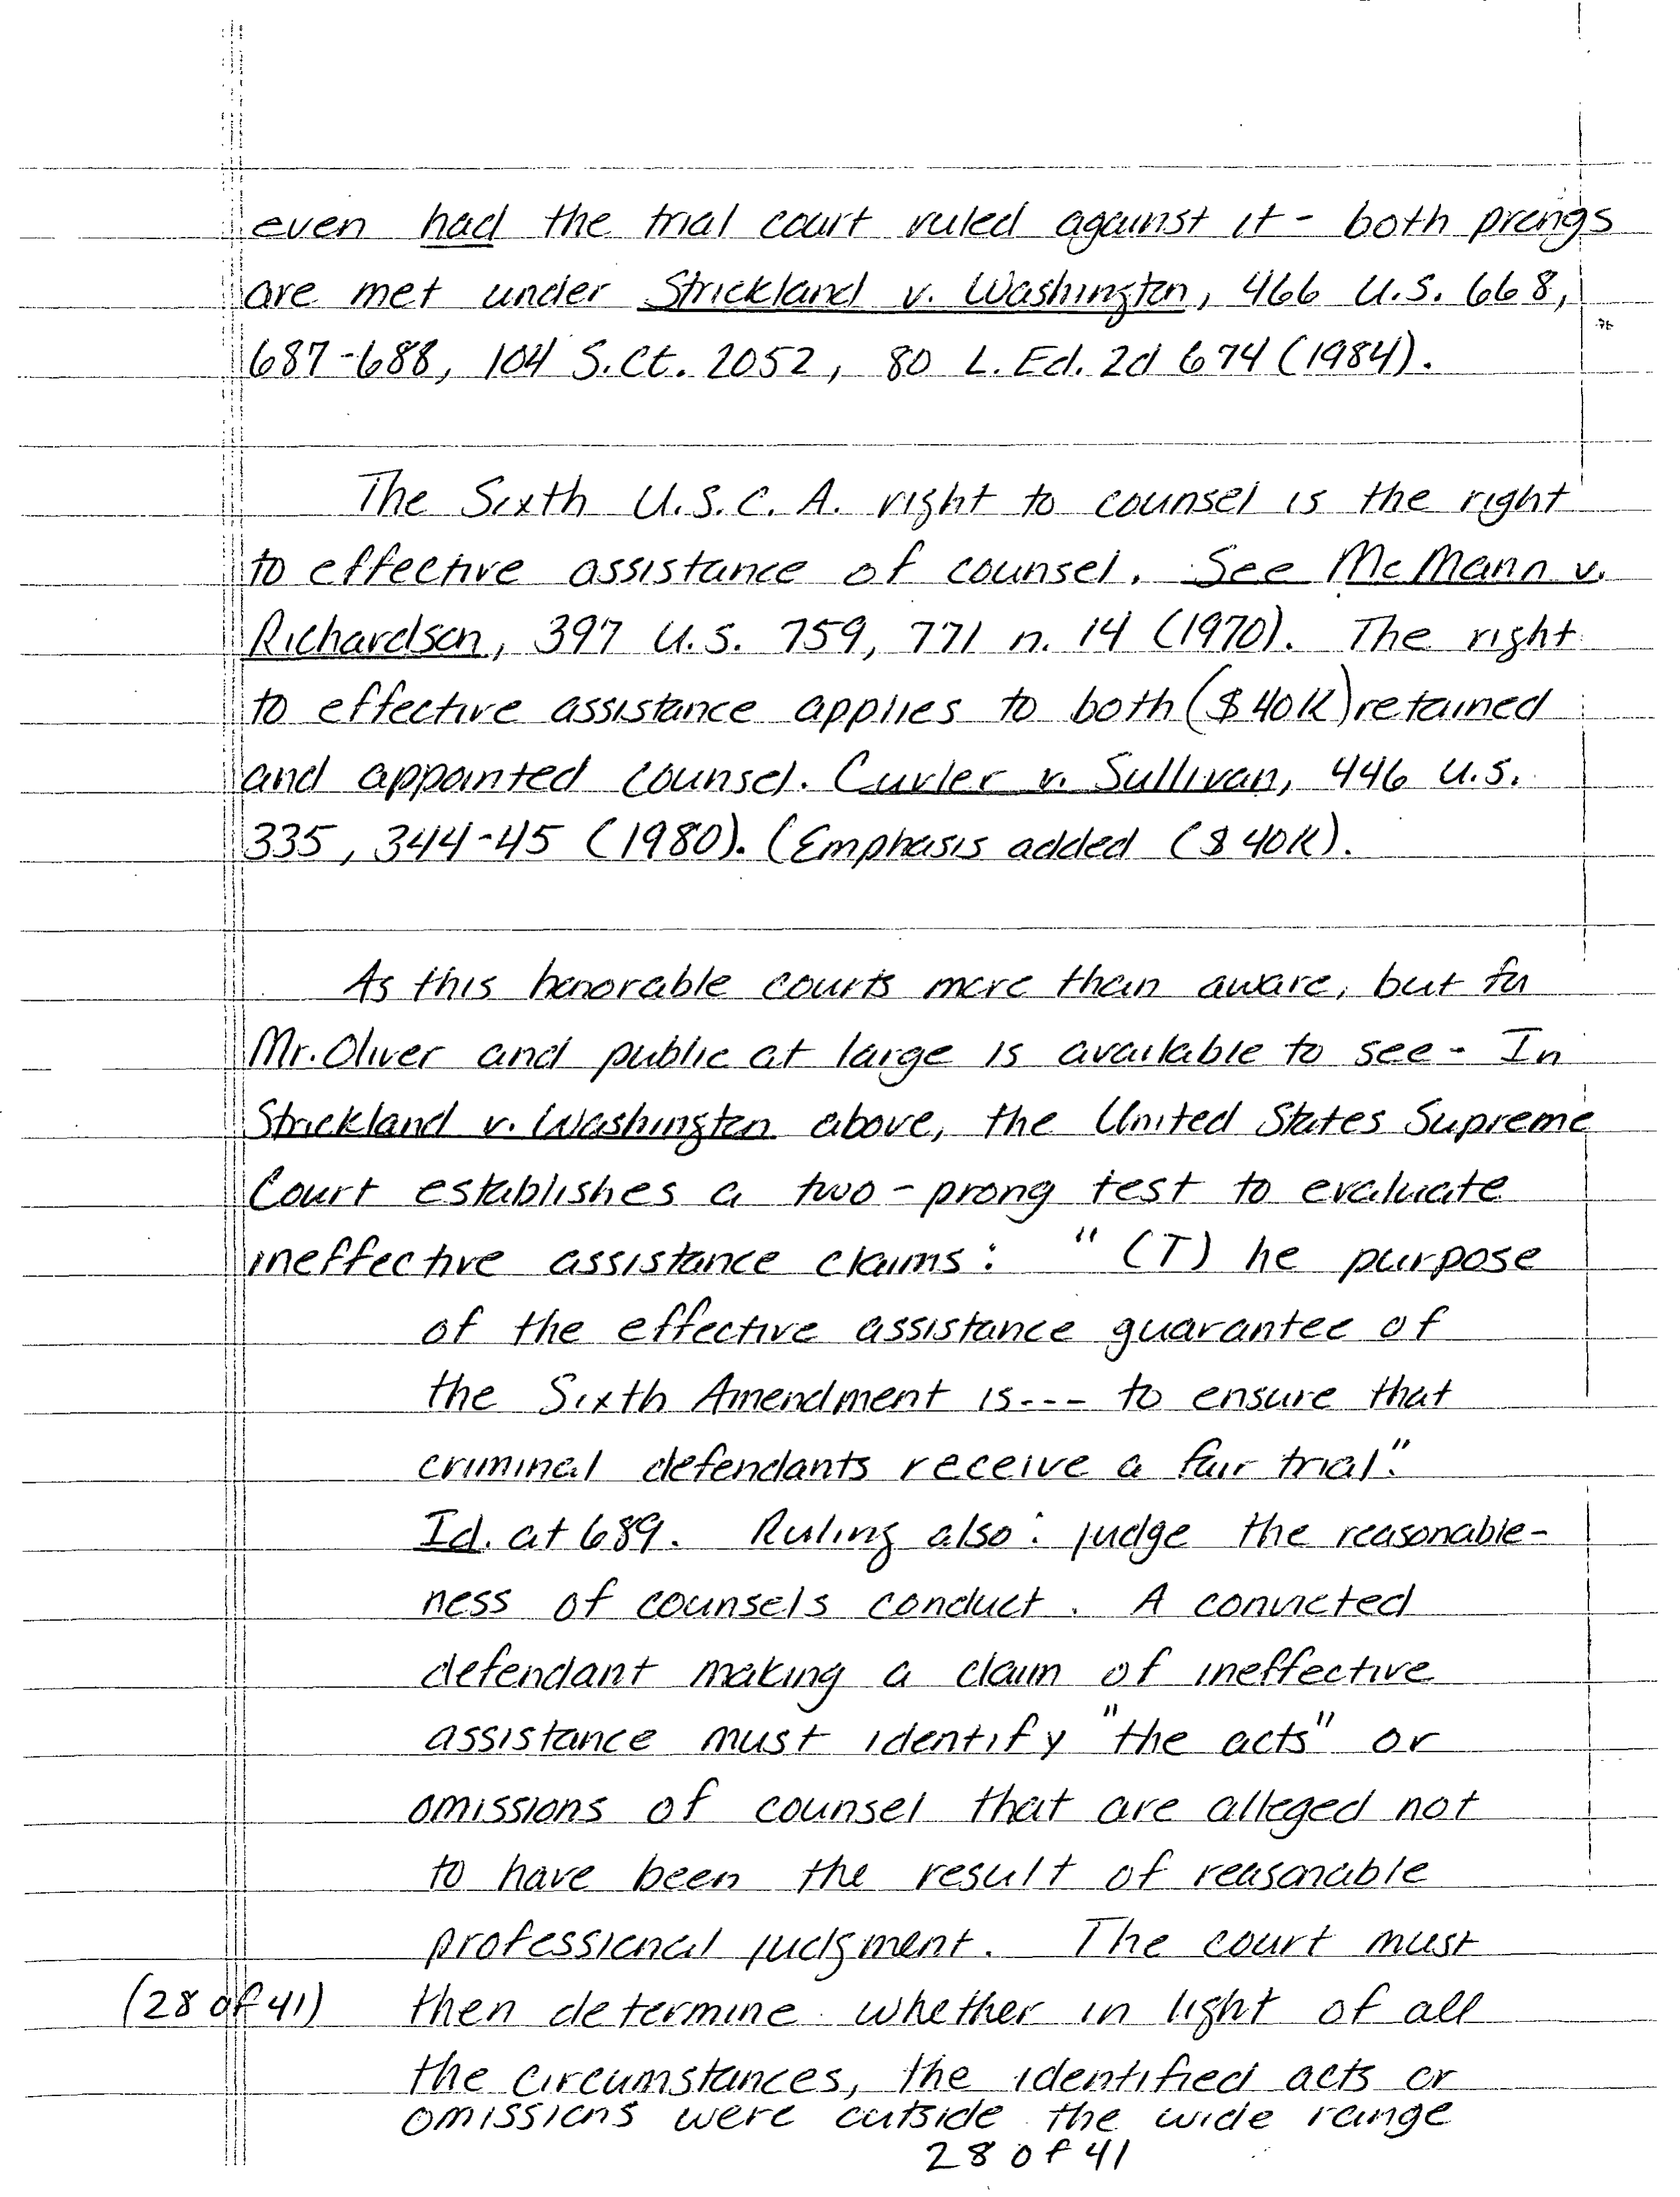 even had the trial court ruled against it - both prongs
are met under Strickland v. Washington, 466 U.S. 668,
687-688, 104 S.Ct. 2052, 80 L. Ed. 2d 674 (1984).
The Sixth U.S.C.A. right to counsel is the right
to effective assistance of counsel. See McMann v.
Richardson, 397 U.S. 759, 771 n. 14 (1970). The right
to effective assistance applies to both ($40K) retained
and appointed counsel. Cuyler v. Sullivan, 446 U.S.
335, 344-45 (1980). (Emphasis added ($40K).
As this honorable courts more than aware, but for
Mr. Oliver and public at large is available to see - In
Strickland v. Washington above, the United States Supreme
Court establishes a two-prong test to evaluate
ineffective assistance claims: "(T) he purpose
of the effective assistance guarantee of
the Sixth Amendment is --- to ensure that
criminal defendants receive a fair trial."
Id. at 689. Ruling also: judge the reasonable-
ness of counsels conduct. A convicted
defendant making a claim of ineffective
assistance must identify "the acts" or
omissions of counsel that are alleged not
to have been the result of reasonable
professional judgment. The court must
(28 of 41) then determine whether in light of all
the circumstances, the identified acts or
omissions were outside the wide range
28 of 41